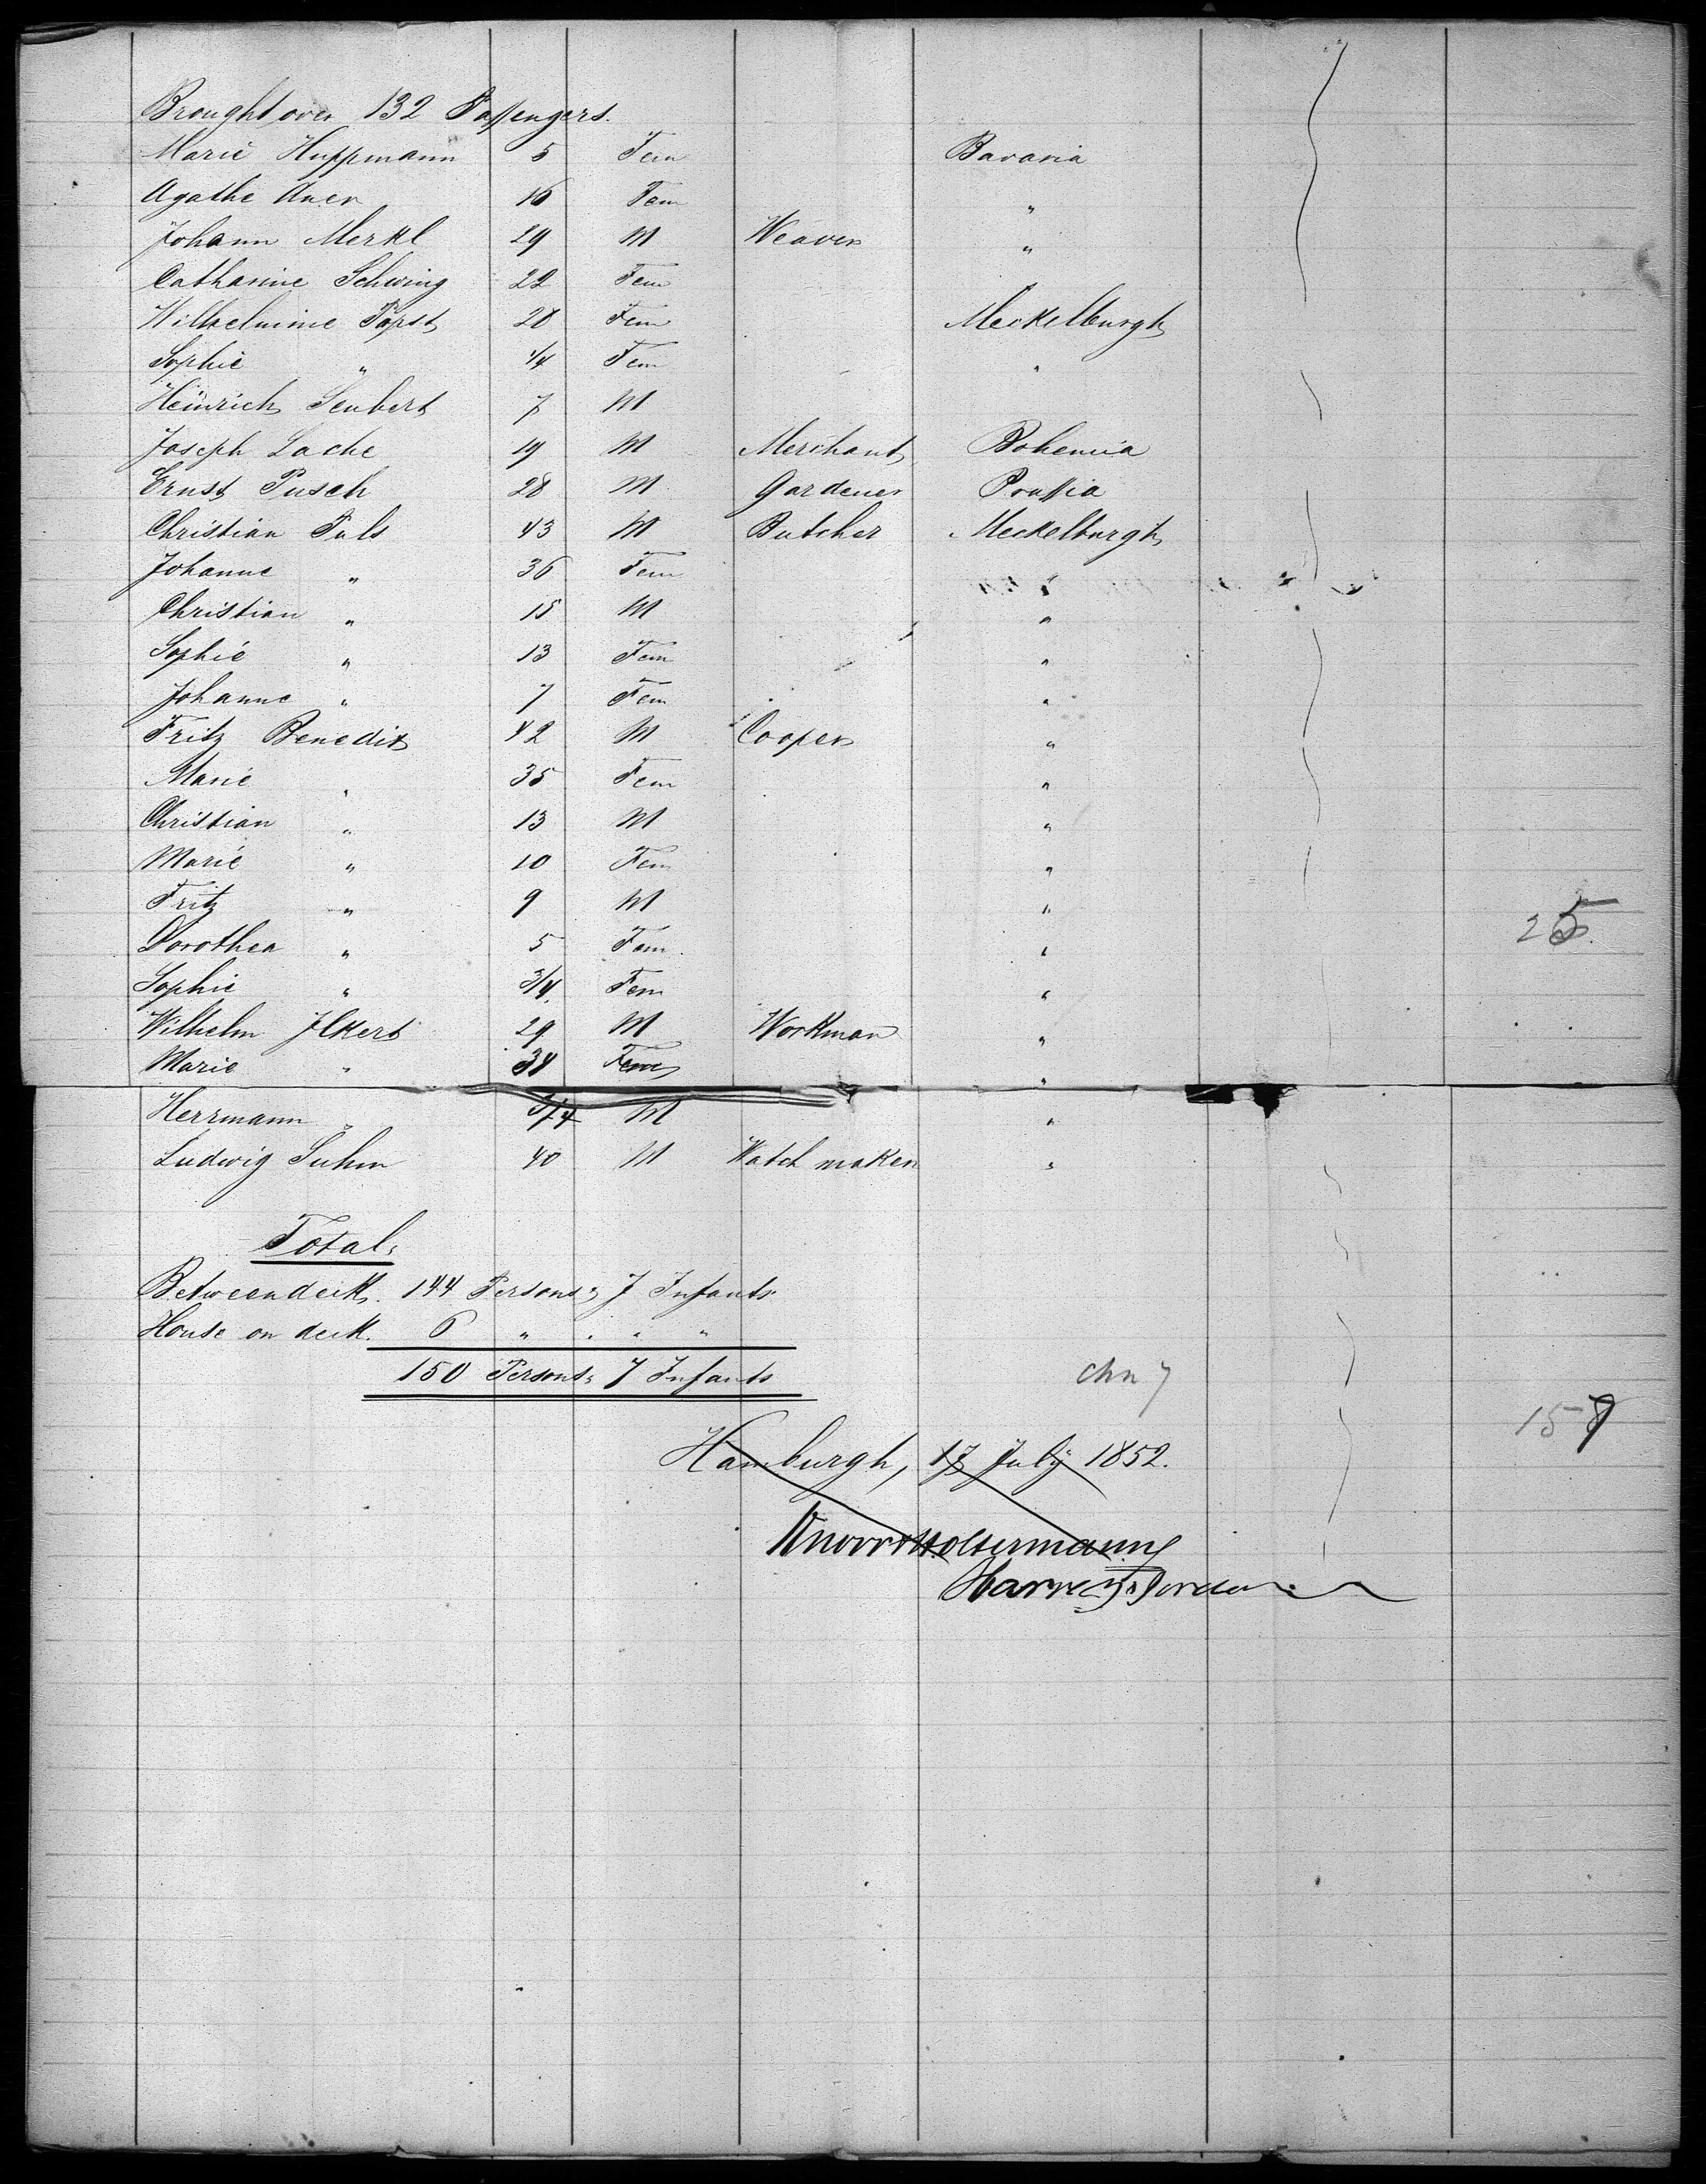 Brought over 132 Passengers.
Marie Huppmann 5 Fem Bavaria
Agathe Auer 16 Fem "
Johann Merkl 29 M Weaver "
Catharine Schwing 22 Fem
Wilhelmine Papst 28 Fem Meckelburgh
Sophie " 1/4 Fem "
Heinrich Seubert 7 M
Joseph Lache 19 M Merchant Bohemia
Ernst Pusch 28 M Gardener Prussia
Christian Puls 43 M Butcher Meckelburgh
Johanne " 36 Fem "
Christian " 15 M "
Sophie " 13 Fem "
Johanne " 7 Fem "
Fritz Benedix 42 M Cooper "
Marie " 35 Fem "
Christian " 13 M "
Marie " 10 Fem "
Fritz " 9 M "
25
Dorothea " 5 Fem "
Sophie " 3/4 Fem "
Wilhelm Ilkert 29 M Workman "
Marie " 38 Fem "
Herrmann " 3/4 M "
Ludwig Suhm 40 M Watch maker "
Total,
Betweendeck. 144 Persons, 7 Infants
House on deck. 6 " " "
150 Persons, 7 Infants
chn 7
157
Hamburgh, 17 July 1852.
Knorr & Holtermann